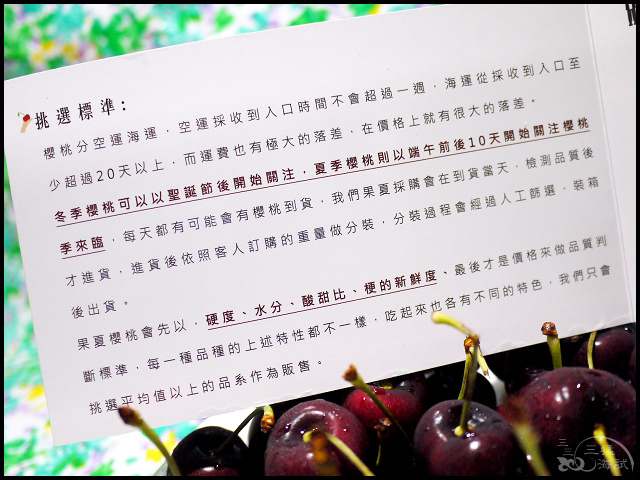 挑選標準：
櫻桃分空運海運，空運採收到入口時間不會超過一週，海運從採收到入口至
少超過20天以上，而運費也有極大的落差，在價格上就有很大的落差。
冬季櫻桃可以以聖誕節後開始關注，夏季櫻桃則以端午前後10天開始關注櫻桃
季來臨，每天都有可能會有櫻桃到貨，我們果夏採購會在到貨當天，檢測品質後
才進貨，進貨後依照客人訂購的重量做分裝，分裝過程會經過人工篩選，裝箱
後出貨。
果夏櫻桃會先以，硬度、水分、酸甜比、梗的新鮮度、最後才是價格來做品質判
斷標準，每一種品種的上述特性都不一樣，吃起來也各有不同的特色，我們只會
挑選平均值以上的品系作為販售。